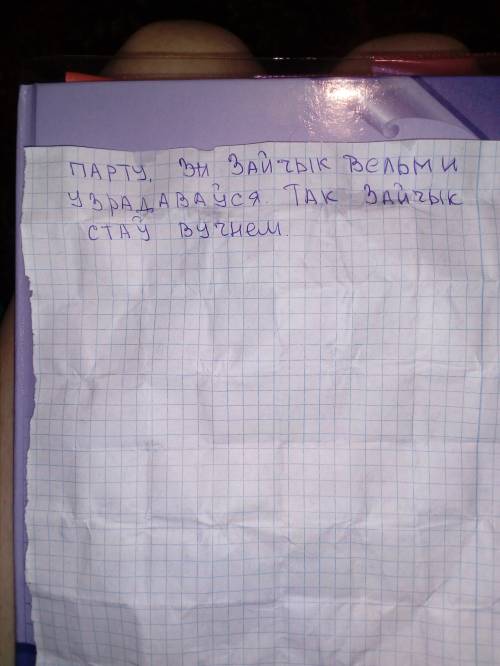 ПАРТУ. ЭН ЗАЙЧЫК ВЕЛЬМИ
УЗРАДАВАЎСЯ. ТАК ЗАЙЧЫК
СТАЎ ВУЧНЕМ.